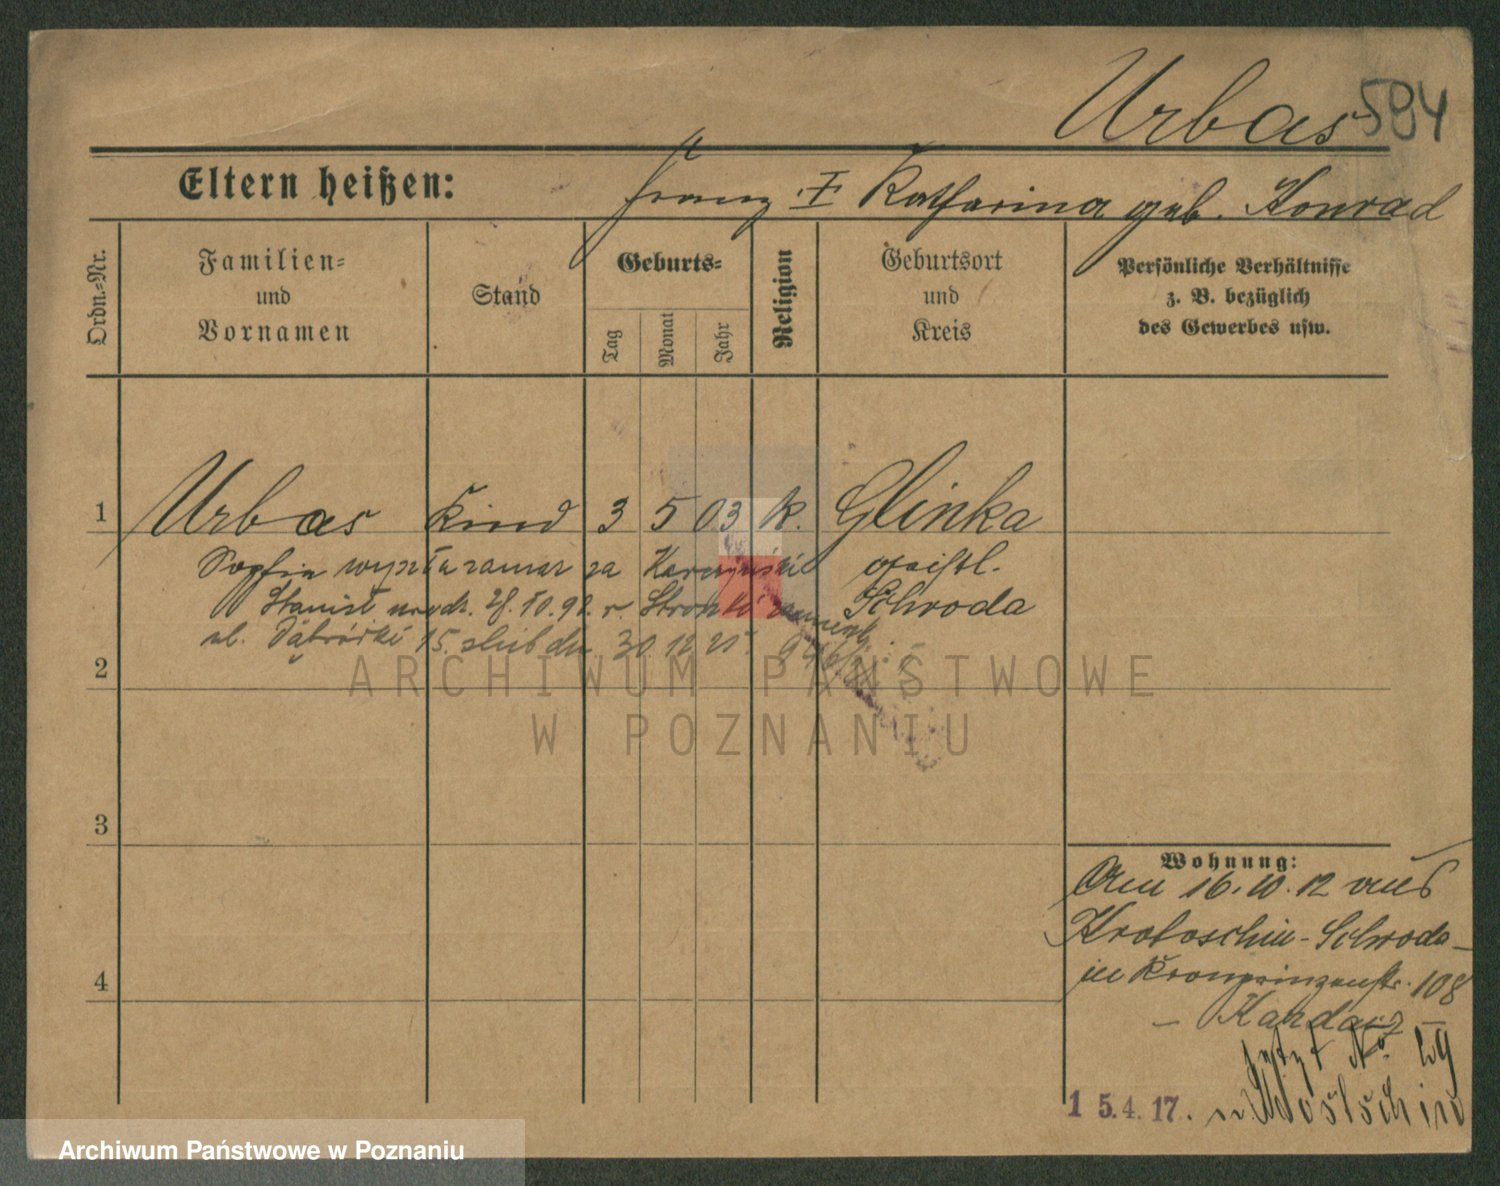 Urbas 584
Eltern heißen: Franz † Katharina geb. Konrad
Ordn.=Nr.
Familien=
und
Vornamen
Stand
Geburts=
Tag
Monat
Jahr
Religion
Geburtsort
und
Kreis
Persönliche Verhältnisse
z. B. bezüglich
des Gewerbes usw.
1 Urbas Kind 3 5 03 k. Glinka
Sophia wyszła zamąż za geistl.
Stanisł. urodz. 28.10.98. Schroda
ul. Dąbrówki 15. ślub dn. 30 12 25.
2
3
4
Wohnung:
Am 16.10.12 aus
Krotoschin - Schroda
in Kronprinzenstr. 108
Jetzt No. 29
15.4.17.
ARCHIWUM PAŃSTWOWE
W POZNANIU
Archiwum Państwowe w Poznaniu